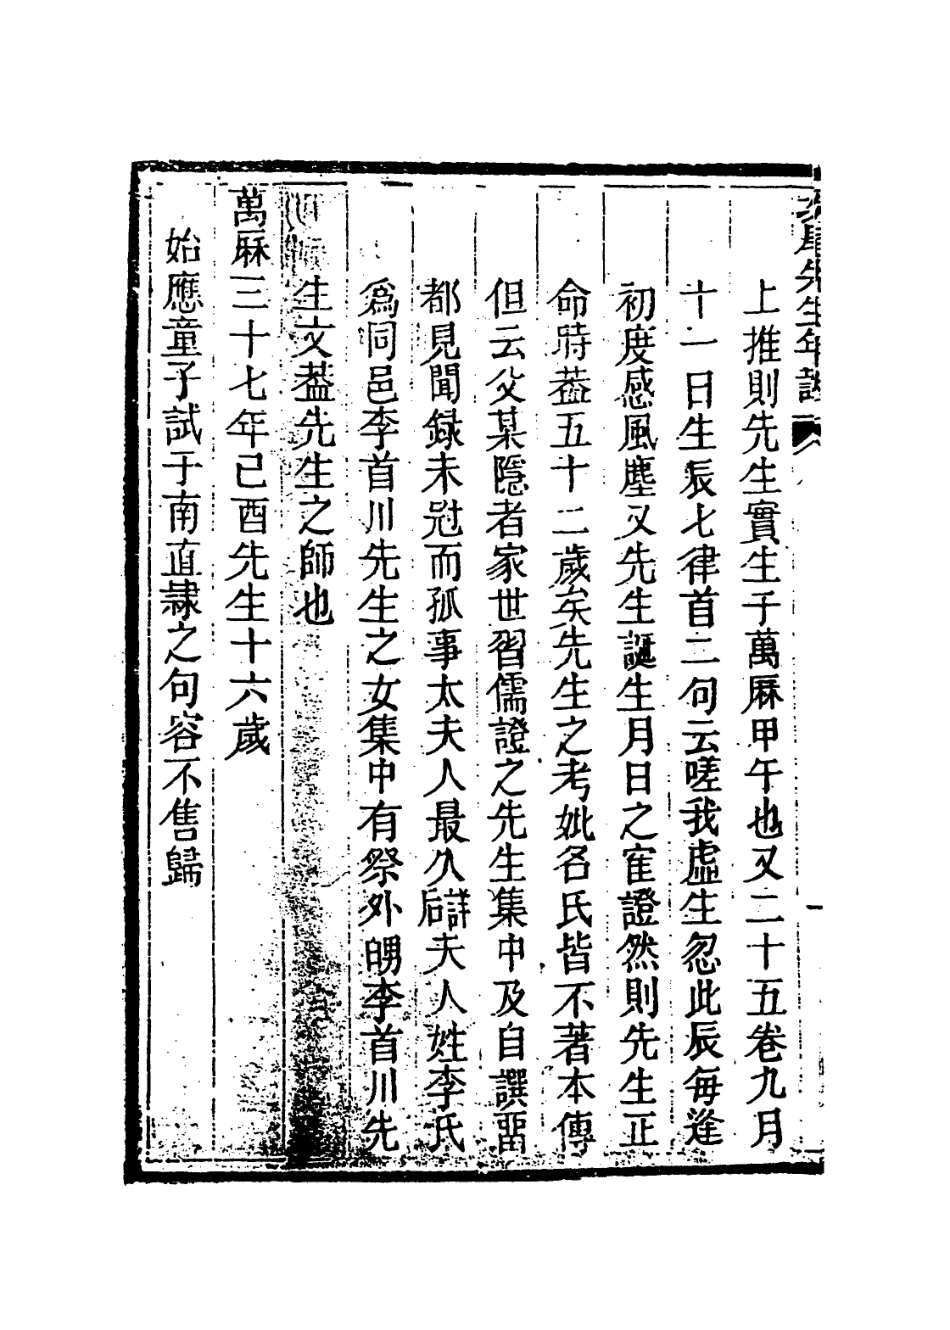 次尾先生年譜
上推則先生實生于萬厤甲午也又二十五卷九月
十一日生辰七律首二句云嗟我虛生忽此辰每逢
初度感風塵又先生誕生月日之寉證然則先生正
命時葢五十二歲矣先生之考妣名氏皆不著本傳
但云父某隱者家世習儒證之先生集中及自譔畱
都見聞録未冠而孤事太夫人最久后辥夫人姓李氏
爲同邑李首川先生之女集中有祭外舅李首川先
生文葢先生之師也
萬厤三十七年己酉先生十六歲
始應童子試于南直隸之句容不售歸